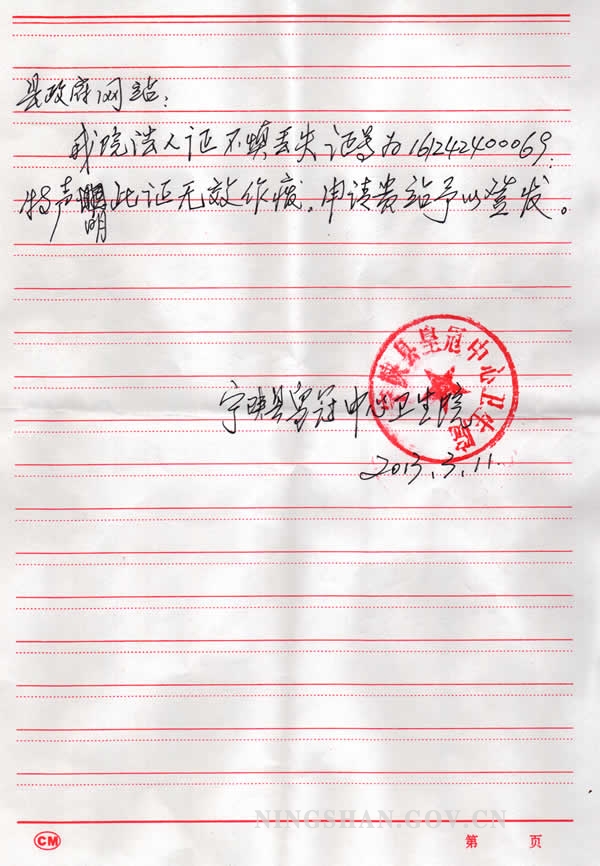 县政府网站：
我院法人证不慎丢失证号为161242400069.
特声明此证无效作废，申请贵站予以登发。
宁陕县皇冠中心卫生院
宁陕县皇冠中心卫生院
2013.3.11.
NINGSHAN.GOV.CN
CM
第 页